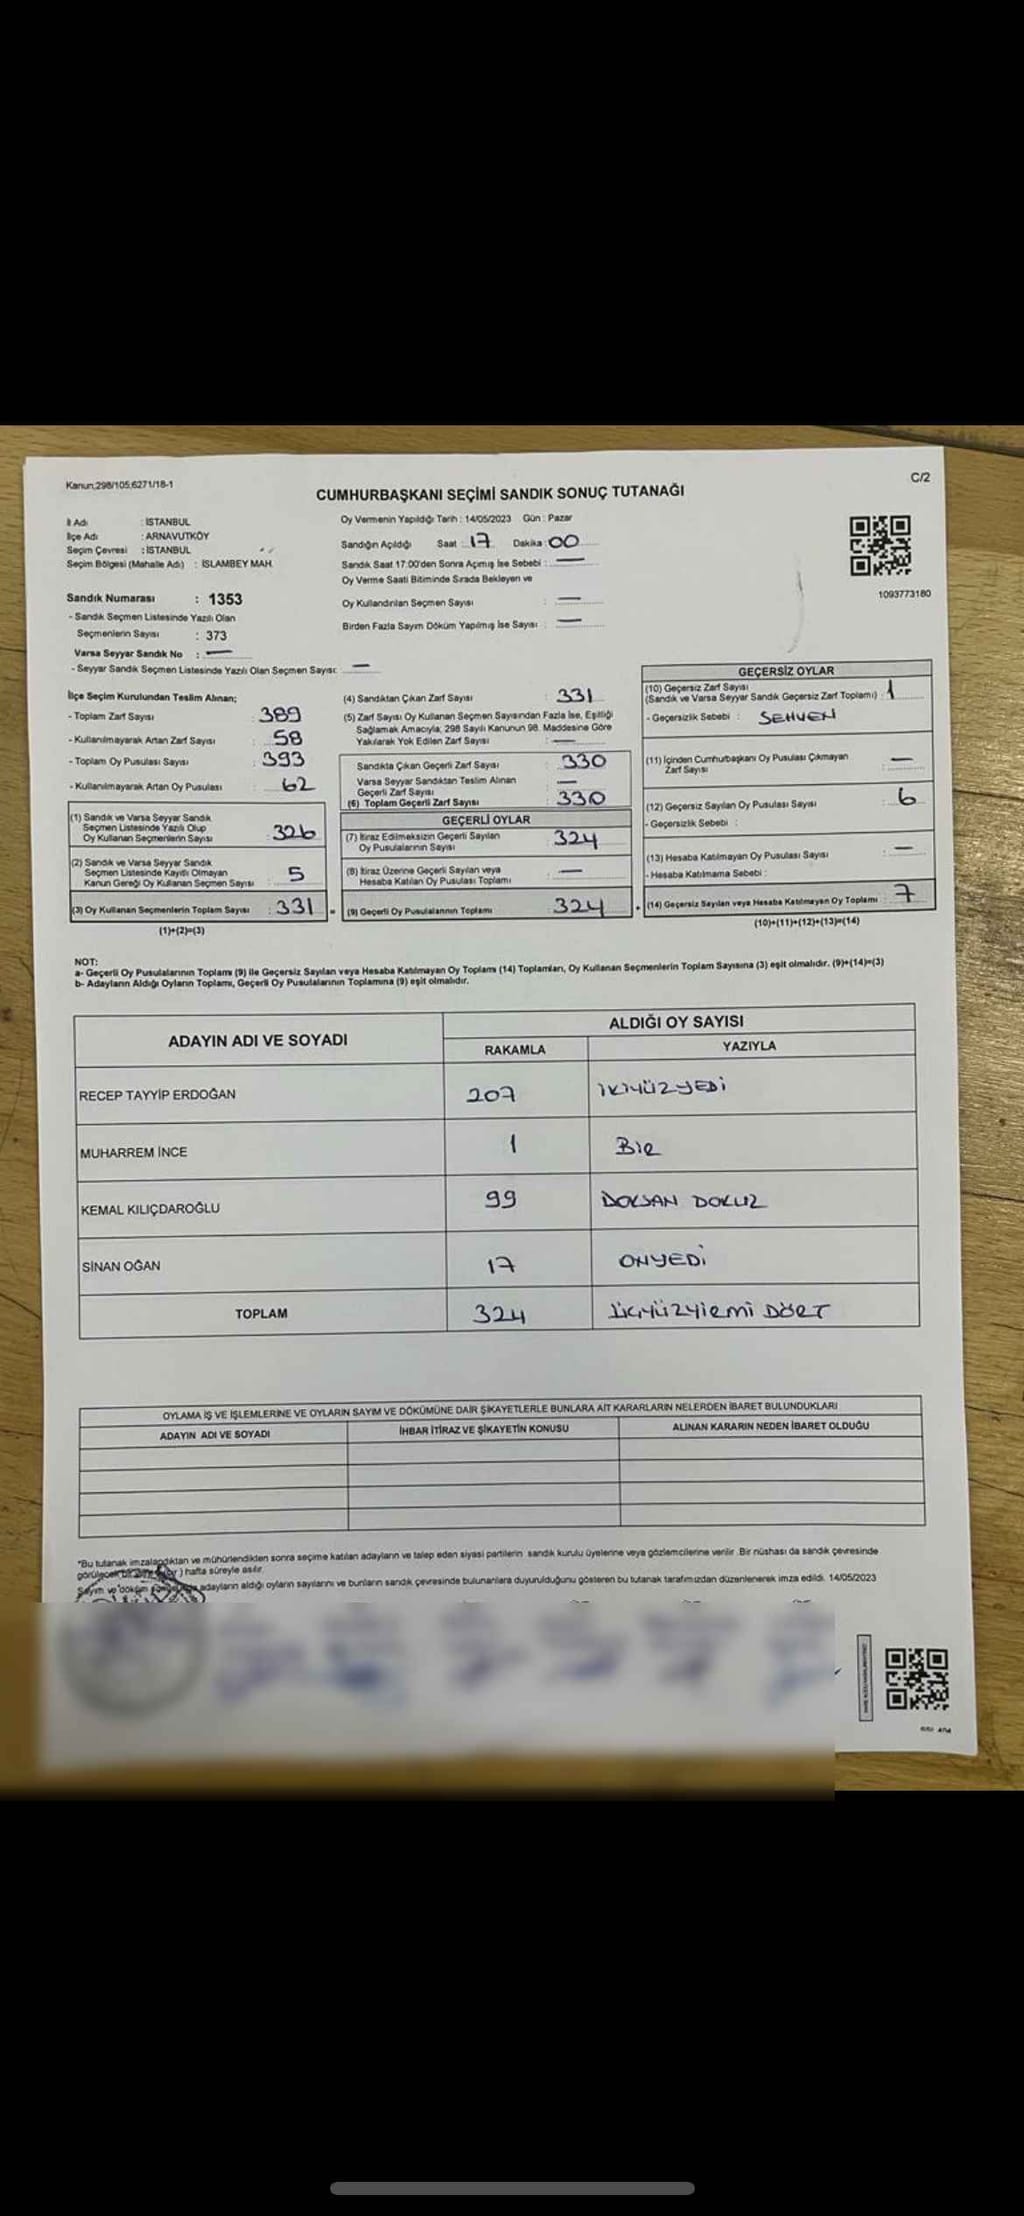 Kanun;298/105;6271/18-1
C/2
CUMHURBAŞKANI SEÇİMİ SANDIK SONUÇ TUTANAĞI
İl Adı : İSTANBUL
İlçe Adı : ARNAVUTKÖY
Seçim Çevresi : İSTANBUL
Seçim Bölgesi (Mahalle Adı) : İSLAMBEY MAH.
Oy Vermenin Yapıldığı Tarih : 14/05/2023 Gün : Pazar
Sandığın Açıldığı Saat : 17 Dakika : 00
Sandık Saat 17:00'den Sonra Açımış İse Sebebi : —
Oy Verme Saati Bitiminde Sırada Bekleyen ve
Oy Kullandırılan Seçmen Sayısı : —
Birden Fazla Sayım Döküm Yapılmış İse Sayısı : —
1093773180
Sandık Numarası : 1353
- Sandık Seçmen Listesinde Yazılı Olan
Seçmenlerin Sayısı : 373
Varsa Seyyar Sandık No : —
- Seyyar Sandık Seçmen Listesinde Yazılı Olan Seçmen Sayısı: —
İlçe Seçim Kurulundan Teslim Alınan;
- Toplam Zarf Sayısı : 389
- Kullanılmayarak Artan Zarf Sayısı : 58
- Toplam Oy Pusulası Sayısı : 393
- Kullanılmayarak Artan Oy Pusulası : 62
(1) Sandık ve Varsa Seyyar Sandık
Seçmen Listesinde Yazılı Olup
Oy Kullanan Seçmenlerin Sayısı : 326
(2) Sandık ve Varsa Seyyar Sandık
Seçmen Listesinde Kayıtlı Olmayan
Kanun Gereği Oy Kullanan Seçmen Sayısı : 5
(3) Oy Kullanan Seçmenlerin Toplam Sayısı : 331
(1)+(2)=(3)
(4) Sandıktan Çıkan Zarf Sayısı : 331
(5) Zarf Sayısı Oy Kullanan Seçmen Sayısından Fazla İse, Eşitliği
Sağlamak Amacıyla; 298 Sayılı Kanunun 98. Maddesine Göre
Yakılarak Yok Edilen Zarf Sayısı : —
Sandıkta Çıkan Geçerli Zarf Sayısı : 330
Varsa Seyyar Sandıktan Teslim Alınan
Geçerli Zarf Sayısı : —
(6) Toplam Geçerli Zarf Sayısı : 330
GEÇERLİ OYLAR
(7) İtiraz Edilmeksizin Geçerli Sayılan
Oy Pusulalarının Sayısı : 324
(8) İtiraz Üzerine Geçerli Sayılan veya
Hesaba Katılan Oy Pusulası Toplamı : —
= (9) Geçerli Oy Pusulalarının Toplamı : 324
GEÇERSİZ OYLAR
(10) Geçersiz Zarf Sayısı
(Sandık ve Varsa Seyyar Sandık Geçersiz Zarf Toplamı) : 1
- Geçersizlik Sebebi : SEHVEN
(11) İçinden Cumhurbaşkanı Oy Pusulası Çıkmayan
Zarf Sayısı : —
(12) Geçersiz Sayılan Oy Pusulası Sayısı : 6
- Geçersizlik Sebebi :
(13) Hesaba Katılmayan Oy Pusulası Sayısı : —
- Hesaba Katılmama Sebebi :
+ (14) Geçersiz Sayılan veya Hesaba Katılmayan Oy Toplamı : 7
(10)+(11)+(12)+(13)=(14)
NOT:
a- Geçerli Oy Pusulalarının Toplamı (9) ile Geçersiz Sayılan veya Hesaba Katılmayan Oy Toplamı (14) Toplamları, Oy Kullanan Seçmenlerin Toplam Sayısına (3) eşit olmalıdır. (9)+(14)=(3)
b- Adayların Aldığı Oyların Toplamı, Geçerli Oy Pusulalarının Toplamına (9) eşit olmalıdır.
ADAYIN ADI VE SOYADI
ALDIĞI OY SAYISI
RAKAMLA YAZIYLA
RECEP TAYYİP ERDOĞAN 207 İKİYÜZYEDİ
MUHARREM İNCE 1 BİR
KEMAL KILIÇDAROĞLU 99 DOKSAN DOKUZ
SİNAN OĞAN 17 ONYEDİ
TOPLAM 324 ÜÇYÜZYİRMİ DÖRT
OYLAMA İŞ VE İŞLEMLERİNE VE OYLARIN SAYIM VE DÖKÜMÜNE DAİR ŞİKAYETLERLE BUNLARA AİT KARARLARIN NELERDEN İBARET BULUNDUKLARI
ADAYIN ADI VE SOYADI İHBAR İTİRAZ VE ŞİKAYETİN KONUSU ALINAN KARARIN NEDEN İBARET OLDUĞU
*Bu tutanak imzalandıktan ve mühürlendikten sonra seçime katılan adayların ve talep eden siyasi partilerin sandık kurulu üyelerine veya gözlemcilerine verilir. Bir nüshası da sandık çevresinde
görülecek bir yere hafta süreyle asılır.
Sayım ve döküm adayların aldığı oyların sayılarını ve bunların sandık çevresinde bulunanlara duyurulduğunu gösteren bu tutanak tarafımızdan düzenlenerek imza edildi. 14/05/2023